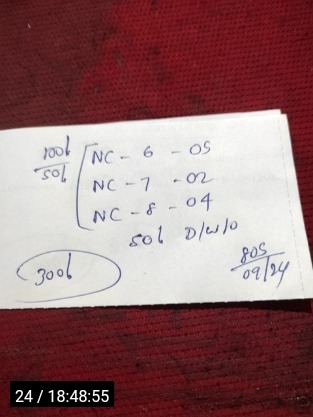 100b
50b
NC - 6 - 05
NC - 7 - 02
NC - 8 - 04
50b D/W/O
300b
805
09/24
24 / 18:48:55